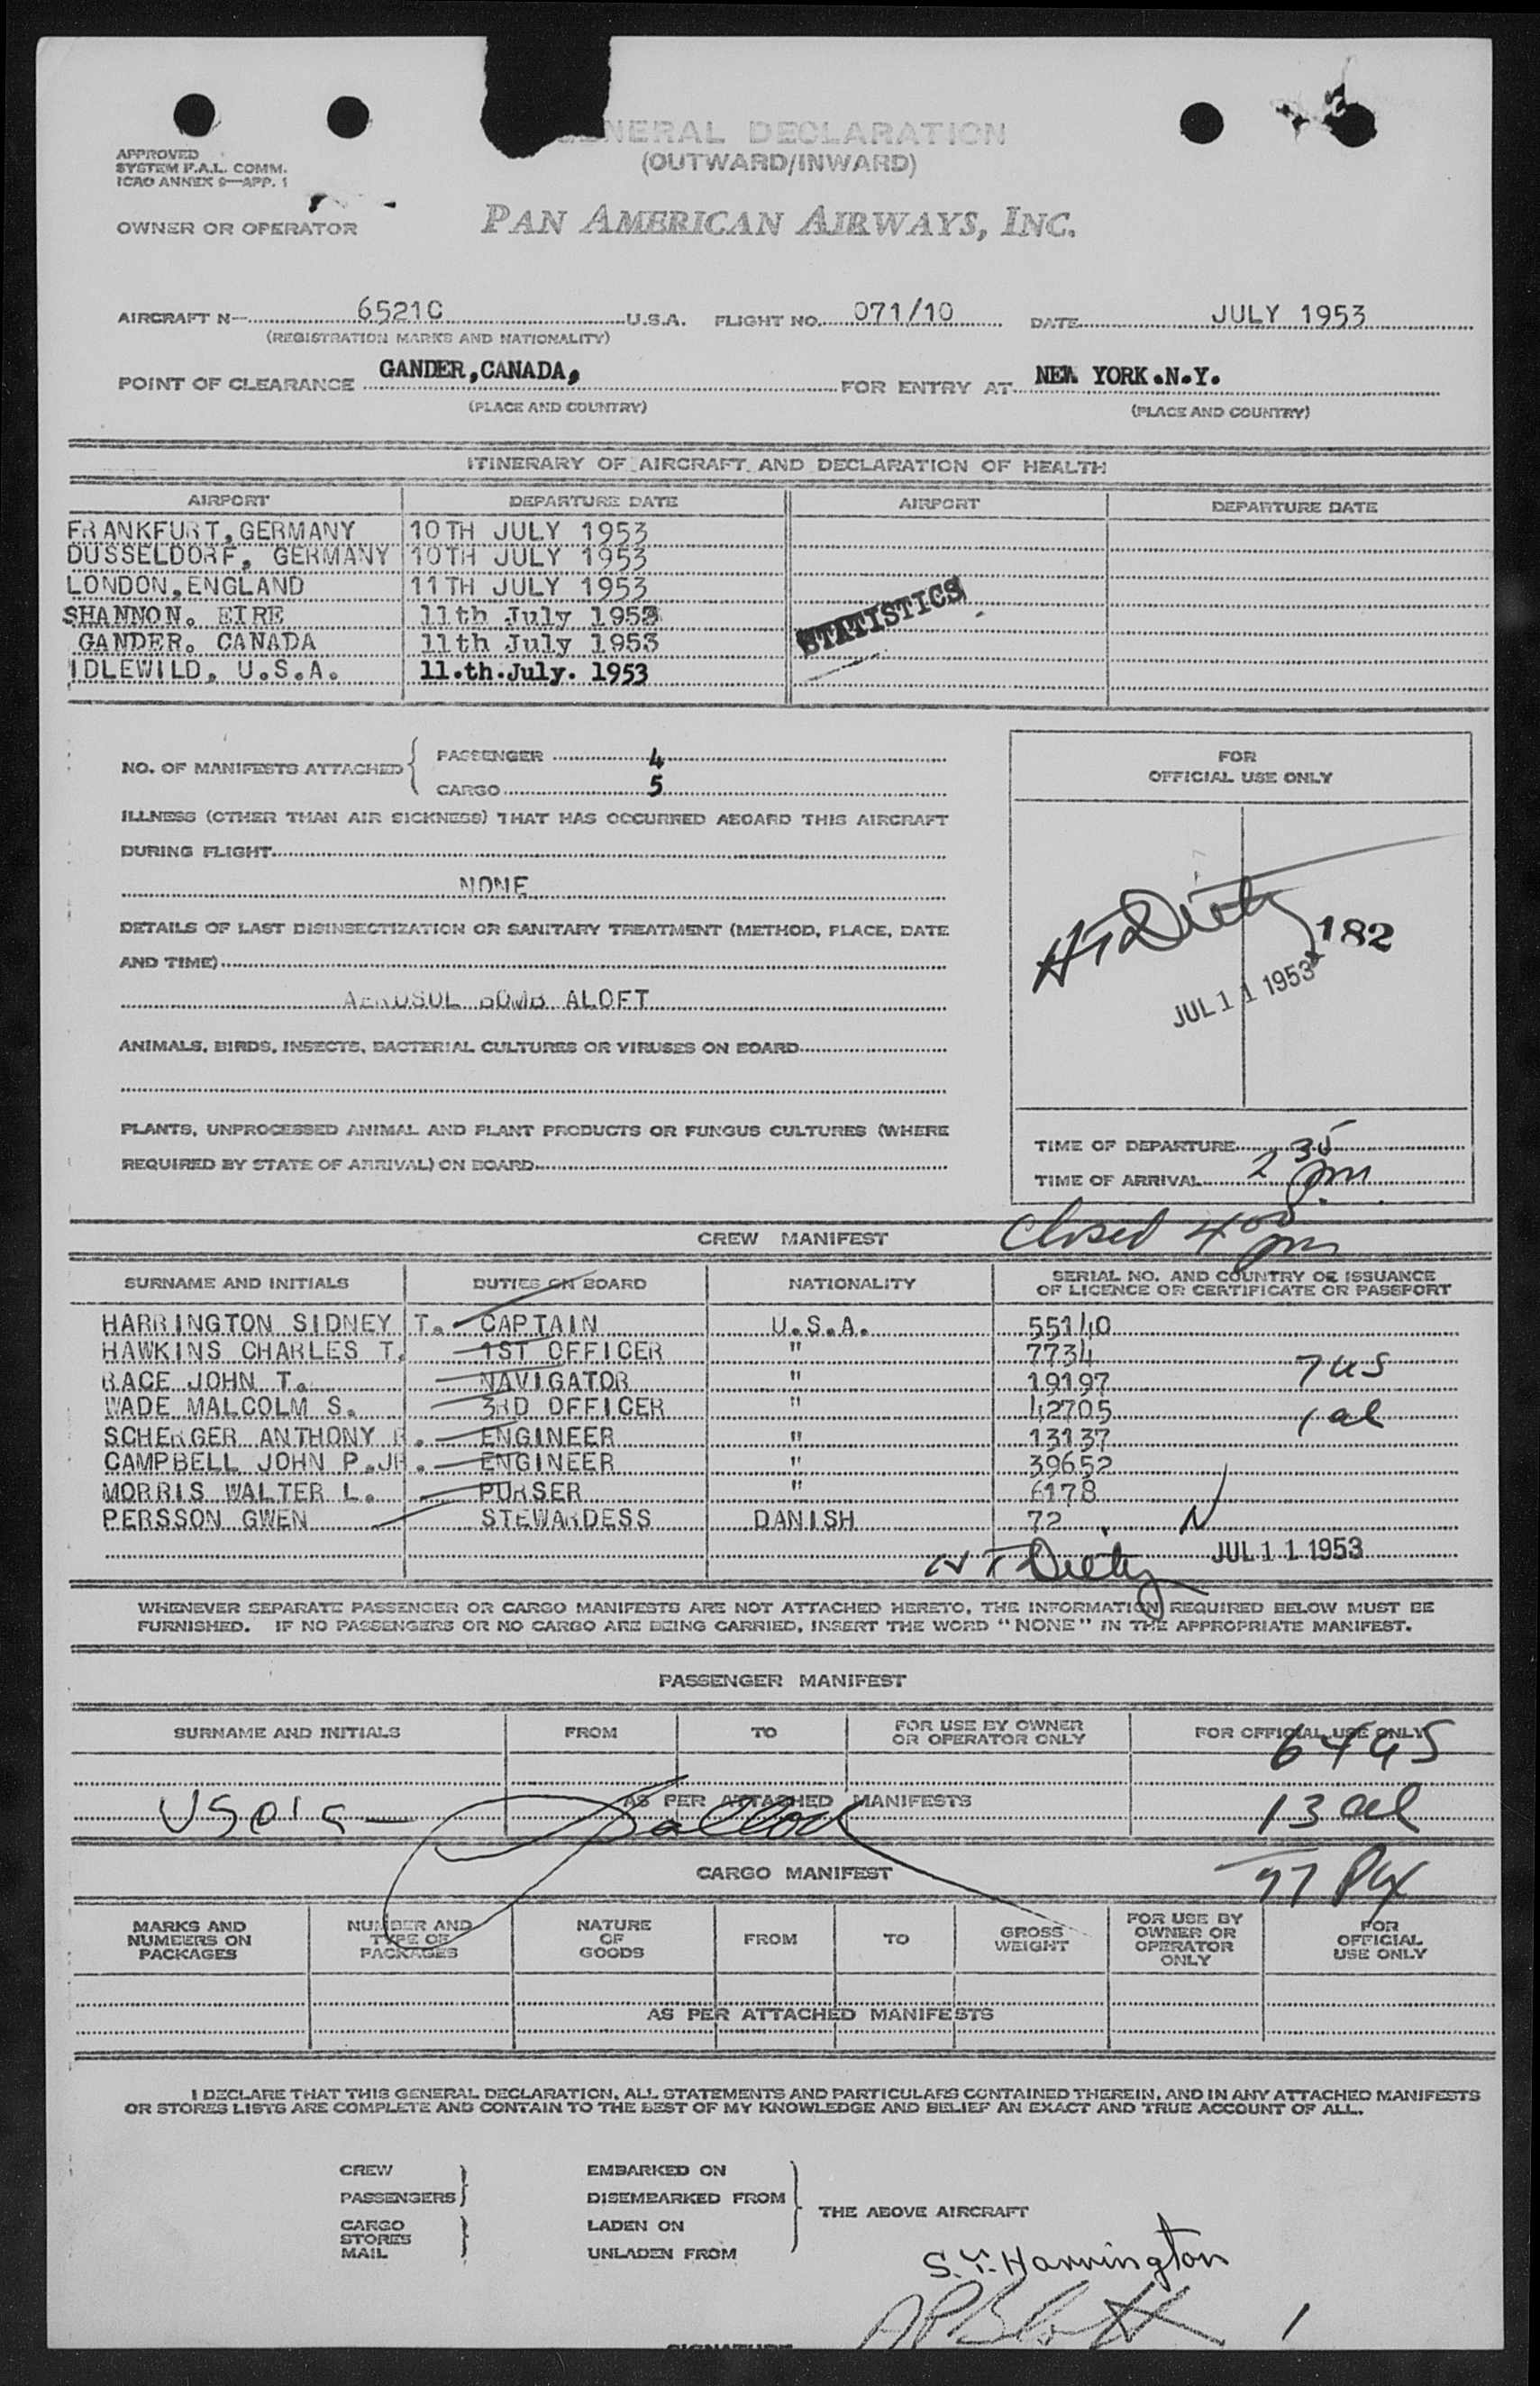 NERAL DECLARATION
(OUTWARD/INWARD)
APPROVED
SYSTEM F.A.L. COMM.
ICAO ANNEX 9—APP. 1
OWNER OR OPERATOR PAN AMERICAN AIRWAYS, INC.
AIRCRAFT N— 6521C U.S.A. FLIGHT NO. 071/10 DATE JULY 1953
(REGISTRATION MARKS AND NATIONALITY)
POINT OF CLEARANCE GANDER,CANADA, FOR ENTRY AT NEW YORK.N.Y.
(PLACE AND COUNTRY) (PLACE AND COUNTRY)
ITINERARY OF AIRCRAFT AND DECLARATION OF HEALTH
AIRPORT DEPARTURE DATE AIRPORT DEPARTURE DATE
FRANKFURT,GERMANY 10TH JULY 1953
DUSSELDORF, GERMANY 10TH JULY 1953
LONDON,ENGLAND 11TH JULY 1953
SHANNON. EIRE 11th July 1953
GANDER. CANADA 11th July 1953
IDLEWILD, U.S.A. 11.th.July. 1953
STATISTICS
NO. OF MANIFESTS ATTACHED { PASSENGER 4
CARGO 5
ILLNESS (OTHER THAN AIR SICKNESS) THAT HAS OCCURRED ABOARD THIS AIRCRAFT
DURING FLIGHT
NONE
DETAILS OF LAST DISINSECTIZATION OR SANITARY TREATMENT (METHOD, PLACE, DATE
AND TIME)
AEROSOL BOMB ALOFT
ANIMALS, BIRDS, INSECTS, BACTERIAL CULTURES OR VIRUSES ON BOARD
PLANTS, UNPROCESSED ANIMAL AND PLANT PRODUCTS OR FUNGUS CULTURES (WHERE
REQUIRED BY STATE OF ARRIVAL) ON BOARD
FOR
OFFICIAL USE ONLY
H T Dietz 182
JUL 11 1953
TIME OF DEPARTURE
TIME OF ARRIVAL 2 35 pm
Closed 400 pm
CREW MANIFEST
SURNAME AND INITIALS DUTIES ON BOARD NATIONALITY SERIAL NO. AND COUNTRY OF ISSUANCE
OF LICENCE OR CERTIFICATE OR PASSPORT
HARRINGTON SIDNEY T. CAPTAIN U.S.A. 55140
HAWKINS CHARLES T. 1ST OFFICER " 7734
RACE JOHN T. NAVIGATOR " 19197 7 US
WADE MALCOLM S. 3RD OFFICER " 42705 1 al
SCHERGER ANTHONY R. ENGINEER " 13137
CAMPBELL JOHN P.JR. ENGINEER " 39652
MORRIS WALTER L. PURSER " 6178
PERSSON GWEN STEWARDESS DANISH 72
H T Dietz JUL 11 1953
WHENEVER SEPARATE PASSENGER OR CARGO MANIFESTS ARE NOT ATTACHED HERETO, THE INFORMATION REQUIRED BELOW MUST BE
FURNISHED. IF NO PASSENGERS OR NO CARGO ARE BEING CARRIED, INSERT THE WORD "NONE" IN THE APPROPRIATE MANIFEST.
PASSENGER MANIFEST
SURNAME AND INITIALS FROM TO FOR USE BY OWNER
OR OPERATOR ONLY FOR OFFICIAL USE ONLY
64 US
AS PER ATTACHED MANIFESTS
13 al
CARGO MANIFEST
77 
MARKS AND
NUMBERS ON
PACKAGES
NUMBER AND
TYPE OF
PACKAGES
NATURE
OF
GOODS
FROM TO
GROSS
WEIGHT
FOR USE BY
OWNER OR
OPERATOR
ONLY
FOR
OFFICIAL
USE ONLY
AS PER ATTACHED MANIFESTS
I DECLARE THAT THIS GENERAL DECLARATION, ALL STATEMENTS AND PARTICULARS CONTAINED THEREIN, AND IN ANY ATTACHED MANIFESTS
OR STORES LISTS ARE COMPLETE AND CONTAIN TO THE BEST OF MY KNOWLEDGE AND BELIEF AN EXACT AND TRUE ACCOUNT OF ALL.
CREW EMBARKED ON
PASSENGERS DISEMBARKED FROM
THE ABOVE AIRCRAFT
CARGO LADEN ON
STORES
MAIL UNLADEN FROM
S.T. Harrington
1
SIGNATURE